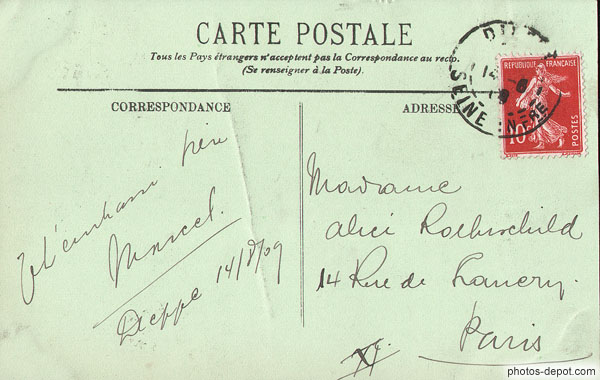 CARTE POSTALE
Tous les Pays étrangers n'acceptent pas la Correspondance au recto.
(Se renseigner à la Poste).
CORRESPONDANCE
ADRESSE
REPUBLIQUE FRANÇAISE
10
POSTES
14 - 8
09
SEINE INFRE
père
Marcel
Dieppe 14/8/09
Madame
Alice Rothschild
14 Rue de
Paris
XI
photos-depot.com